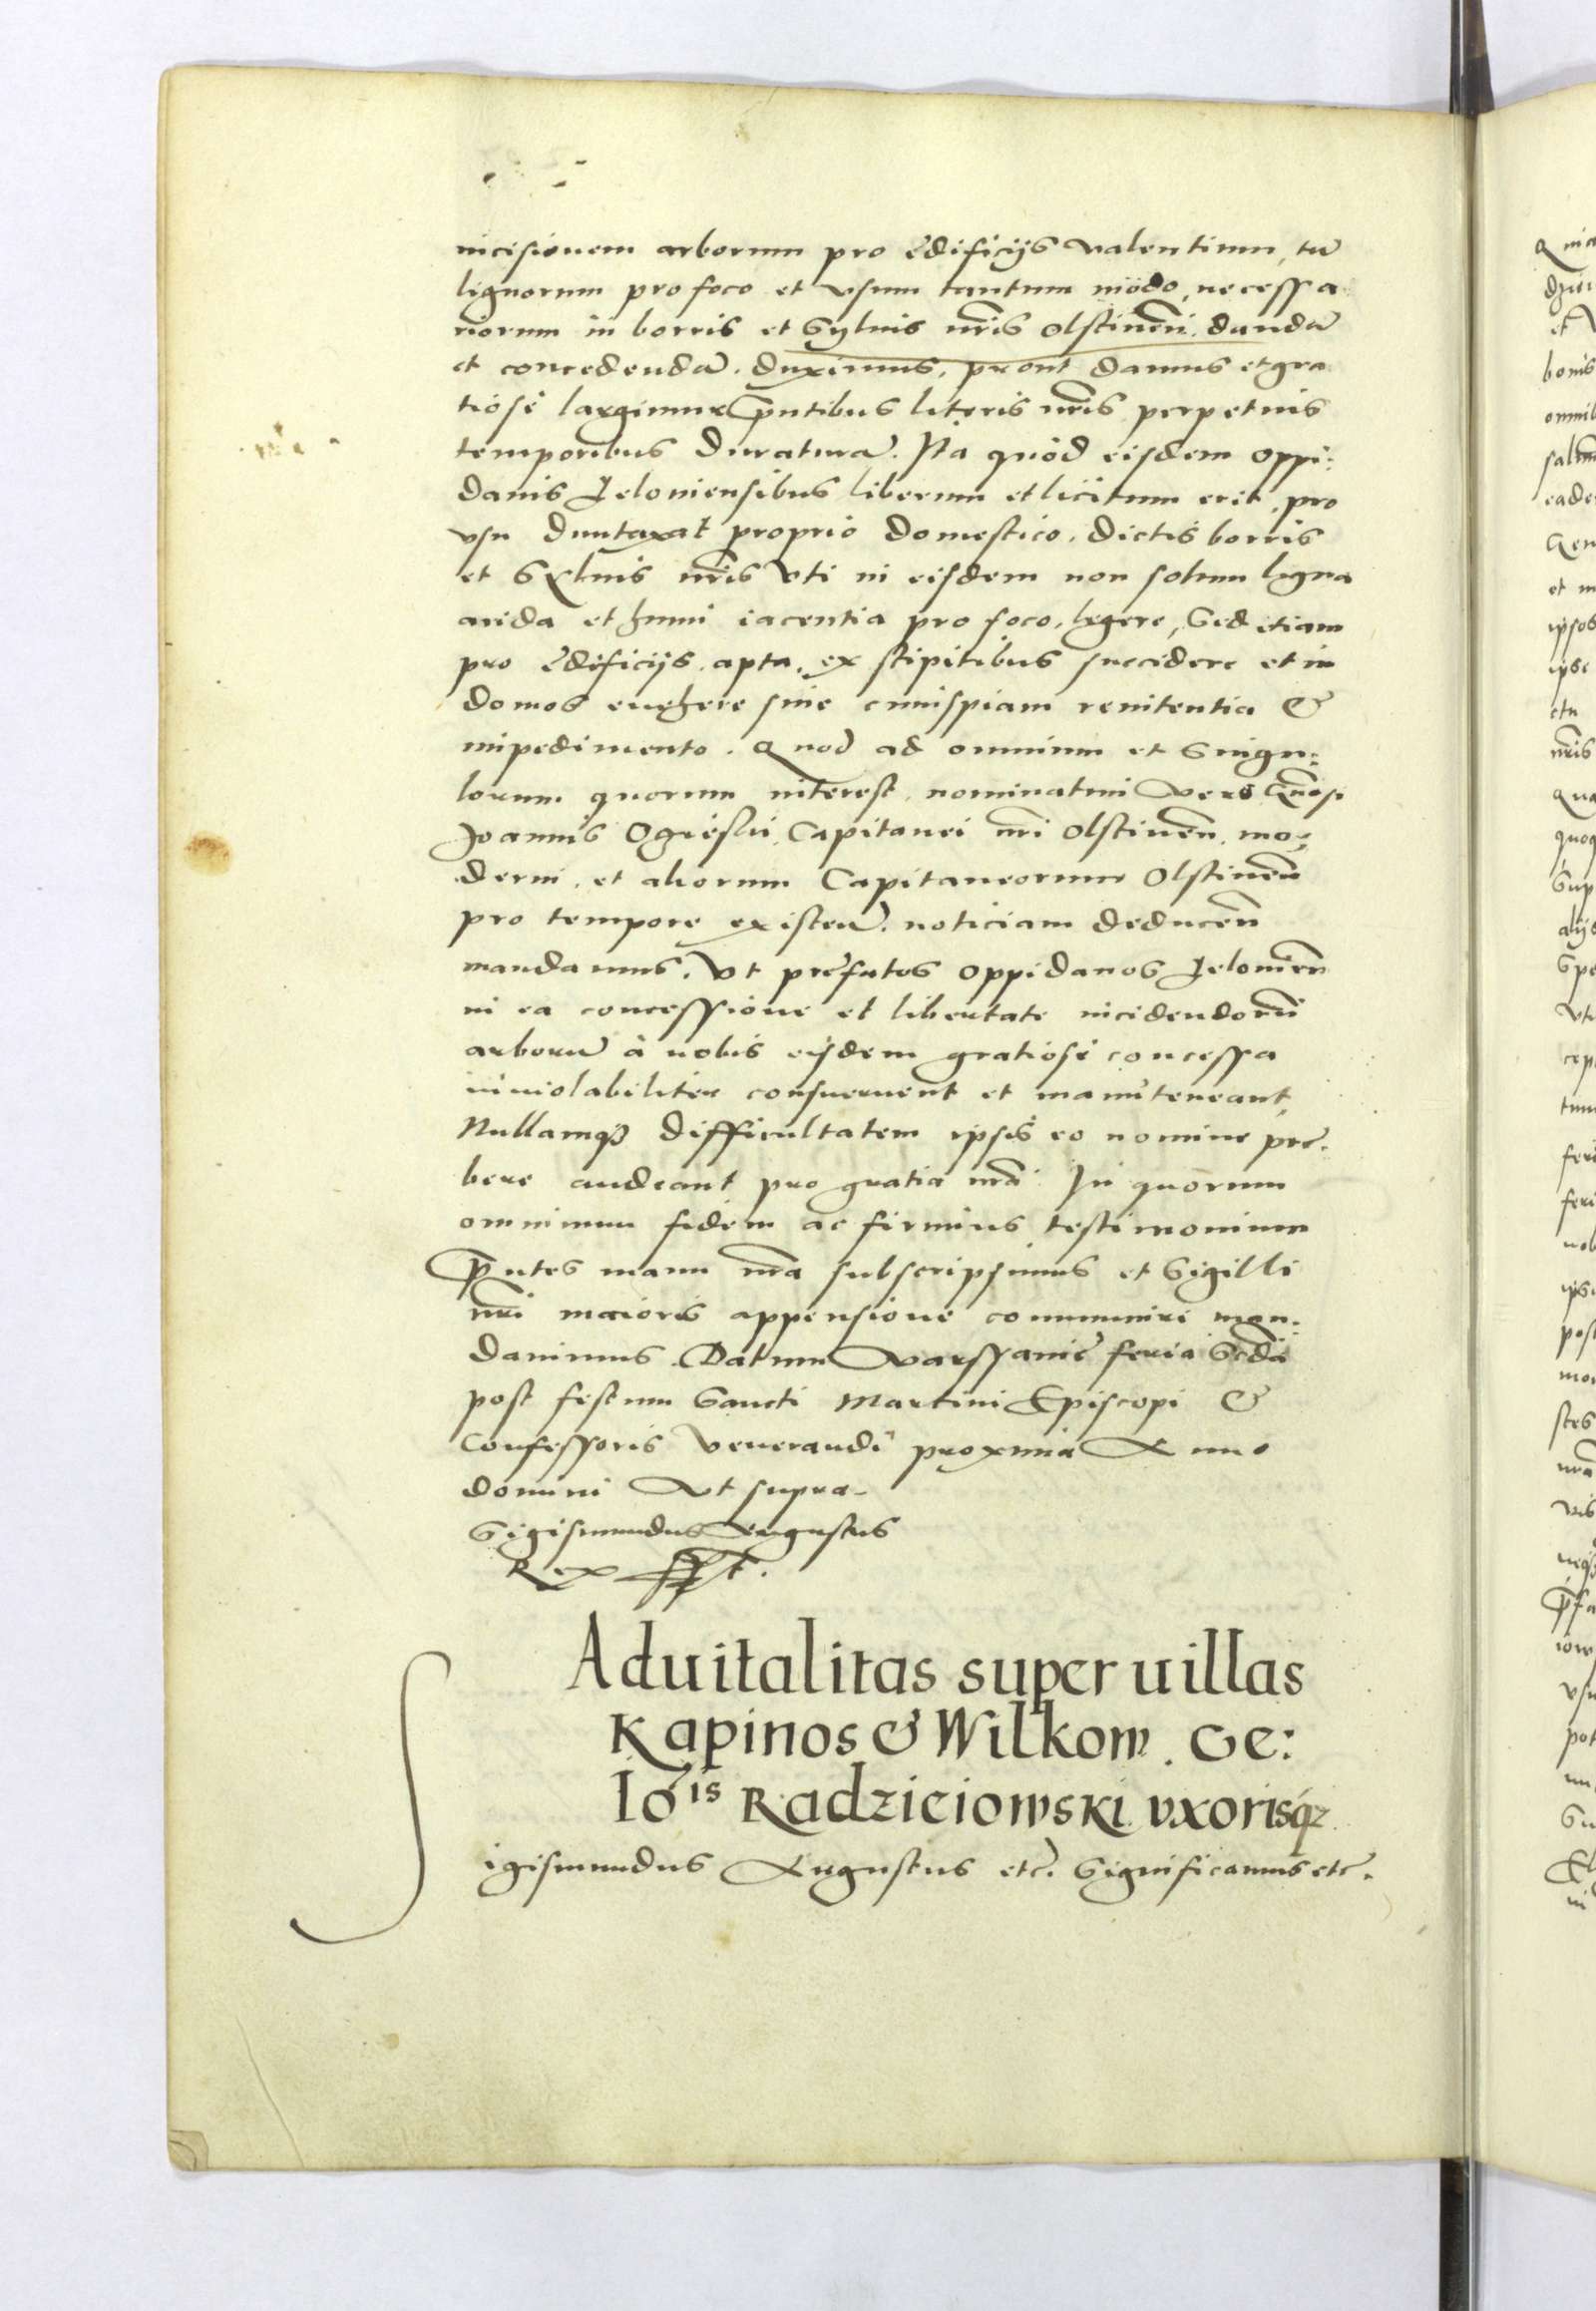 incisionem arborum pro ędificijs valentium, tũ
lignorum pro foco et vsum tantum modo, necessa
riorum in borris et Sylvis nr̃is Olstineñ. dandã
et concedendã. duximus, prout damus et gra
tiosè largimur p̃ntibus literis nr̃is perpetuis
temporibus duraturã. Ita quòd eisdem oppi:
danis Jeloniensibus liberum et licitum erit, pro
vsu duntaxat proprio domestico. dictis borris
et Sylvis nr̃is vti in eisdem non solum ligna
arida et humi iacentia pro foco, legere, Sed etiam
pro ędificijs apta. ex stipitibus succidere et in
domos euehere sine cuiuspiam renitentia &
impedimento. Quod ad omnium et Singu:
lorum quorum interest, nominatim vero Gñosi
Joannis Ogieski, Capitanei nr̃i Olstineñ. mo:
derni, et aliorum Capitaneorum Olstineñ
pro tempore existeñ. noticiam deduceñ
mandamus. Vt pręfatos oppidanos Jelonieñ
in ea concessione et libertate incidendorũ
arborũ à nobis eisdem gratiosè concessa
inuiolabiliter conseruent et manuteneant,
Nullamq3 difficultatem ipsis eo nomine prę:
bere audeant pro gratia nr̃a. In quorum
omnium fidem ac firmius testimonium
p̃ntes manu nr̃a subscripsimus et Sigilli
nr̃i maioris appensione communire man:
dauimus. Datum Varssauię feria Scdã
post festum Sancti Martini Episcopi &
Confessoris Venerandi proxima Anno
domini Vt supra.
Sigismundus Augustus
Rex sszt.
Aduitalitas super uillas
Kapinos & Wilkow. Ge:
Iõis Radzieiowski vxorisq3
Sigismundus Augustus etc̃. Significamus etc̃.